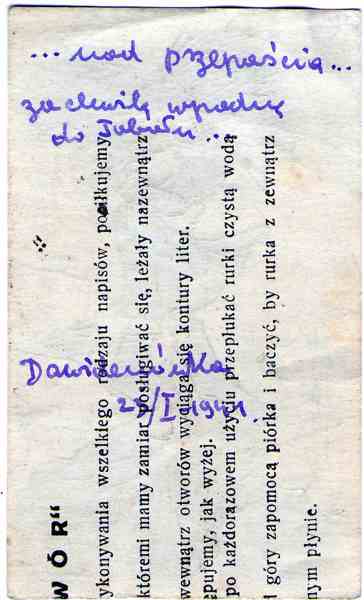 ... nad przepaścią ...
za chwilę wpadnę
do
21/I 1941.
WÓR"
ykonywania wszelkiego rodzaju napisów, posiłkujemy
któremi mamy zamiar posługiwać się, leżały nazewnątrz
wewnątrz otworów wyciąga się kontury liter.
ępujemy, jak wyżej.
po każdorazowem użyciu przepłukać rurki czystą wodą
i góry zapomocą piórka i baczyć, by rurka z zewnątrz
nym płynie.